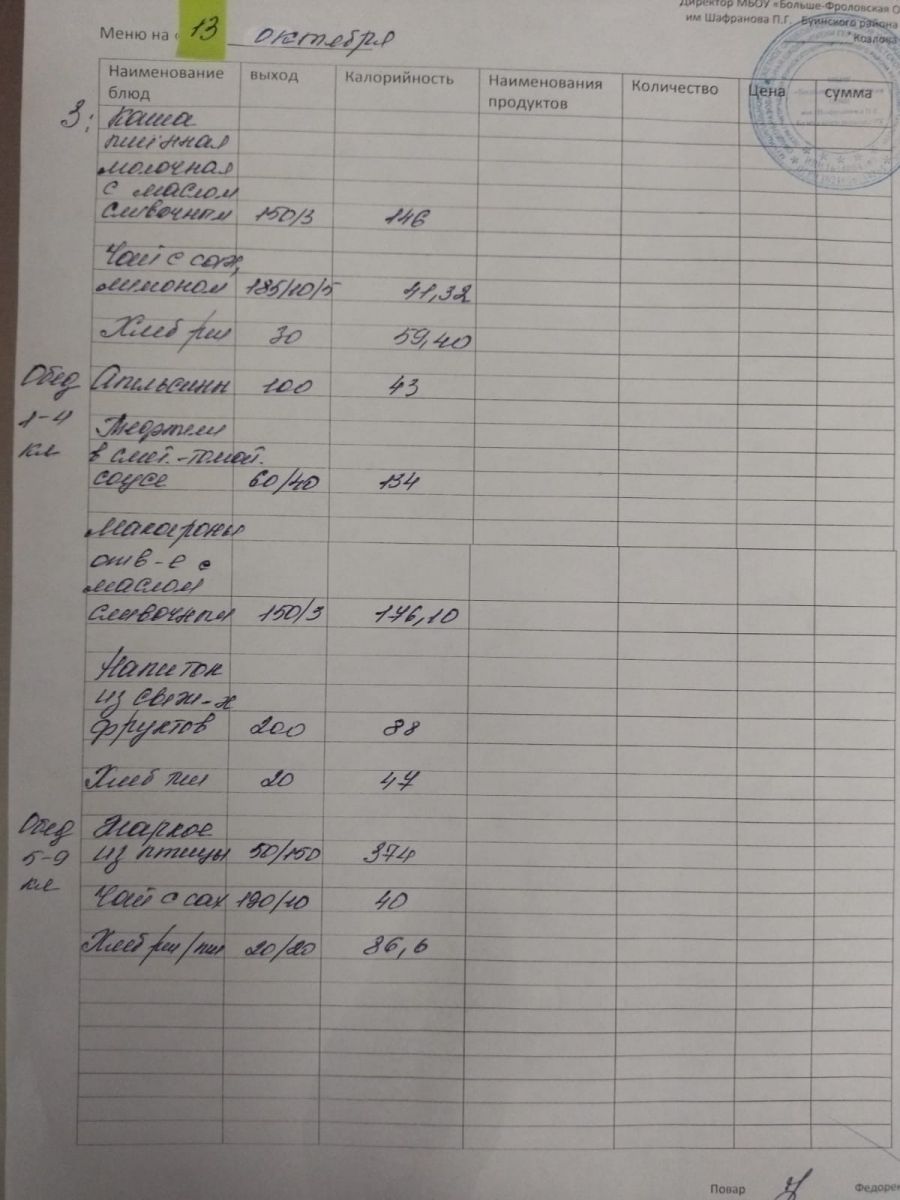 Директор МБОУ «Больше-Фроловская О
им Шафранова П.Г. Буинского района
Козлова
Меню на « 13 октября
Наименование блюд выход Калорийность Наименования продуктов Количество Цена сумма
З: Каша
пшённая
молочная
с маслом
сливочным 150/3 146
Чай с сах,
лимоном 185/10/5 41,32
Хлеб рж 30 59,40
Обед Апельсины 100 43
1-4
кл
Тефтели
в смет.-томат.
соусе 60/40 134
Макароны
отв-е с
маслом
сливочным 150/3 176,10
Напиток
из свеж-х
фруктов 200 88
Хлеб пш 20 47
Обед Жаркое
5-9 из птицы 50/150 374
кл
Чай с сах 190/10 40
Хлеб рж/пш 20/20 86,6
Повар